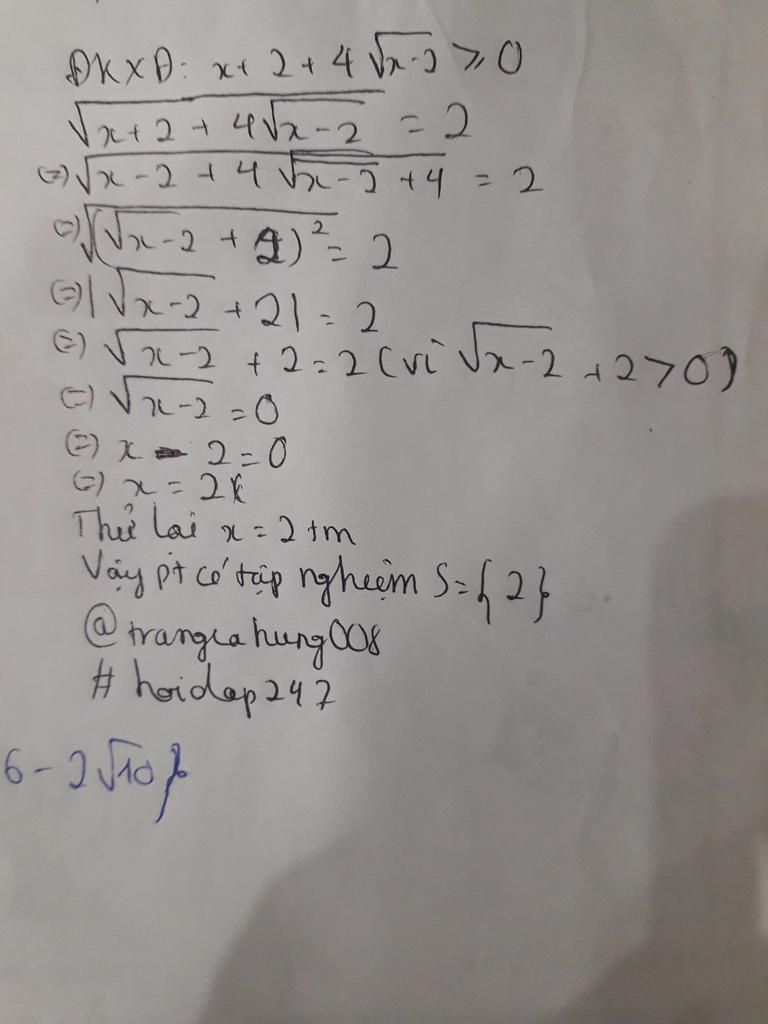 ĐKXĐ: x + 2 + 4√(x-2) ≥ 0
√(x + 2 + 4√(x-2)) = 2
(=) √(x - 2 + 4√(x-2) + 4) = 2
(=) √((√(x-2) + 2)²) = 2
(=) |√(x-2) + 2| = 2
(=) √(x-2) + 2 = 2 (vì √(x-2) + 2 > 0)
(=) √(x-2) = 0
(=) x - 2 = 0
(=) x = 2
Thử lại x = 2 tm
Vậy pt có tập nghiệm S = {2}
@trangcahung008
# hoidap247
6 - 2√10}